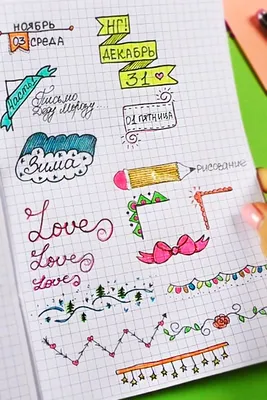 НОЯБРЬ
03 СРЕДА
НГ!
ДЕКАБРЬ
31
Письмо
Деду Морозу
01 ПЯТНИЦА
Зима
РИСОВАНИЕ
Love
Love
Love